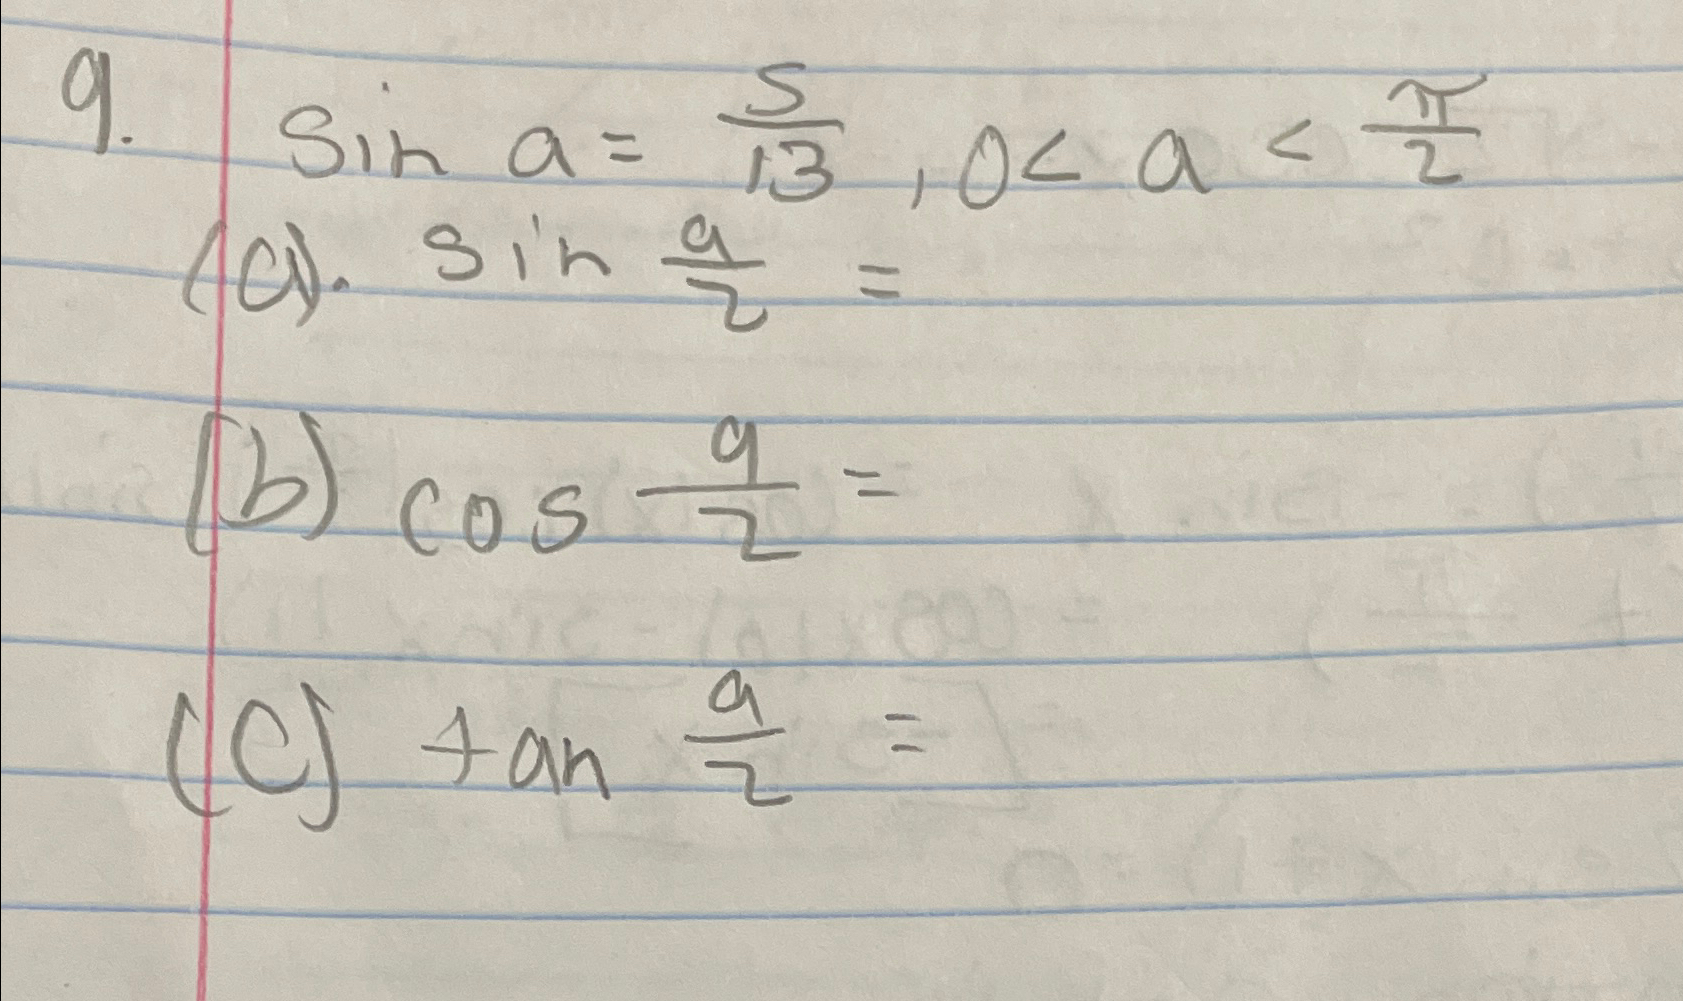 9. sin a = 5/13, 0 < a < π/2
(a). sin a/2 =
(b) cos a/2 =
(c) tan a/2 =